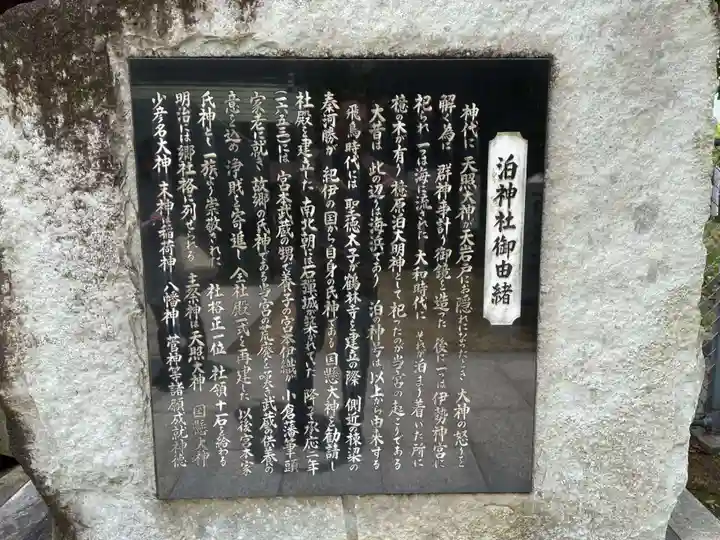 泊神社御由緒
神代に 天照大神が大岩戸にお隠れになったとき 大神の怒りを
解く為に 群神事計り御鏡を造った 後に一は伊勢神宮に
祀られ 一は海に流された 大和時代に それが泊まり着いた所に
檍の木が有り 檍原泊大明神として祀ったのが当宮の起こりである
大昔は 此の辺りは海浜であり 泊神宮は以上から由来する
飛鳥時代には 聖徳太子が鶴林寺を建立の際 側近の棟梁の
秦河勝が 紀伊の国から自身の氏神である 国懸大神を勧請し
社殿を建立した 南北朝には石弾城が築かれていた 降って承応二年
(一六五三)には 宮本武蔵の甥で養子の宮本伊織が 小倉藩筆頭
家老に就いて 故郷の氏神である当宮の荒廃を嘆き 武蔵の供養の
意を込め 浄財を寄進し 全社殿一式を再建した 以後宮本家
氏神とし 一族より崇敬された 社格正一位 社領十石を給わる
明治には 郷社格に列せられる 主祭神は 天照大神 国懸大神
少彦名大神 末神 稲荷神 八幡神 菅神等 諸願成就